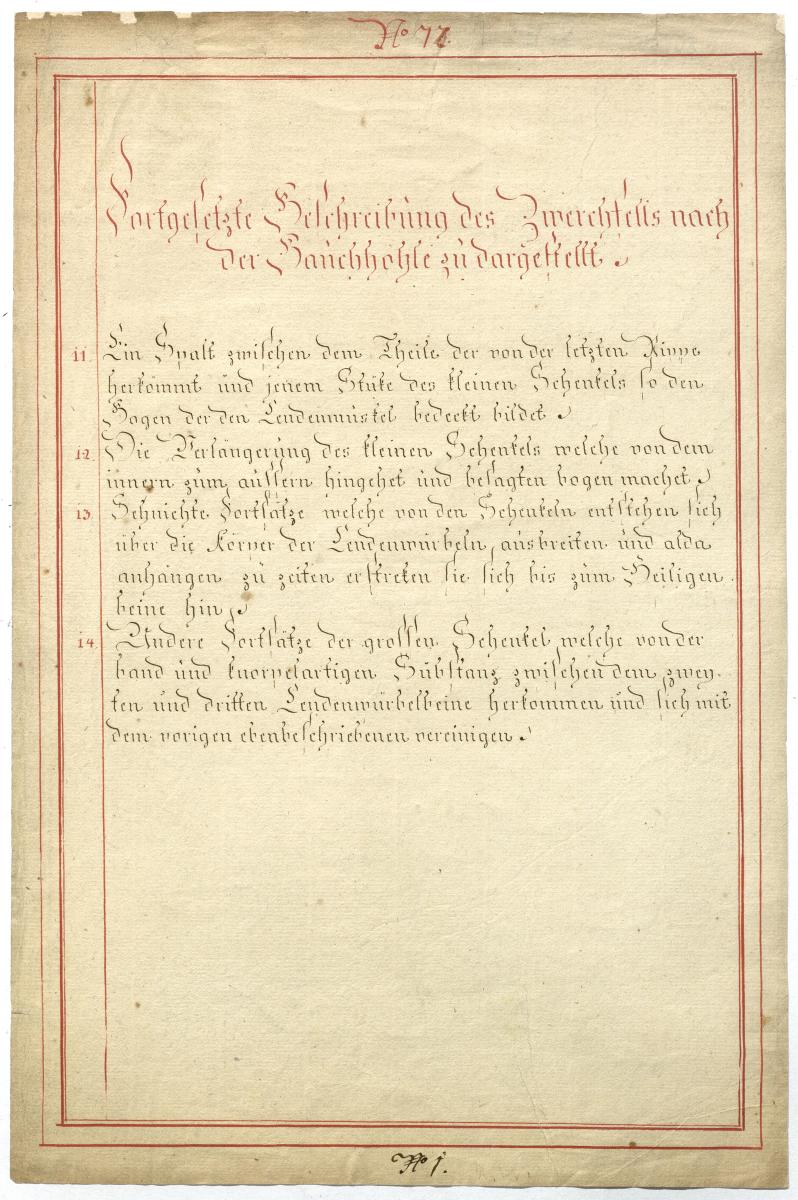 No 77.
Fortgesetzte Beschreibung des Zwerchfells nach
der Bauchhöhle zu dargestellt.
11. Ein Spalt zwischen dem Theile der von der letzten Rippe
herkömmt und jenem Stüke des kleinen Schenkels so den
Bogen der den Lendenmuskel bedeckt bildet.
12. Die Verlängerung des kleinen Schenkels welche von dem
innern zum äussern hingehet und besagten bogen machet.
13. Sehnichte Fortsätze welche von den Schenkeln entstehen sich
über die Körper der Lendenwürbeln ausbreiten und alda
anhangen zu zeiten erstreken sie sich bis zum Heiligen
beine hin.
14. Andere Fortsätze der grossen Schenkel welche von der
band und knorpelartigen Substanz zwischen dem zwey-
ten und dritten Lendenwürbelbeine herkommen und sich mit
dem vorigen ebenbeschriebenen vereinigen.
No 1.